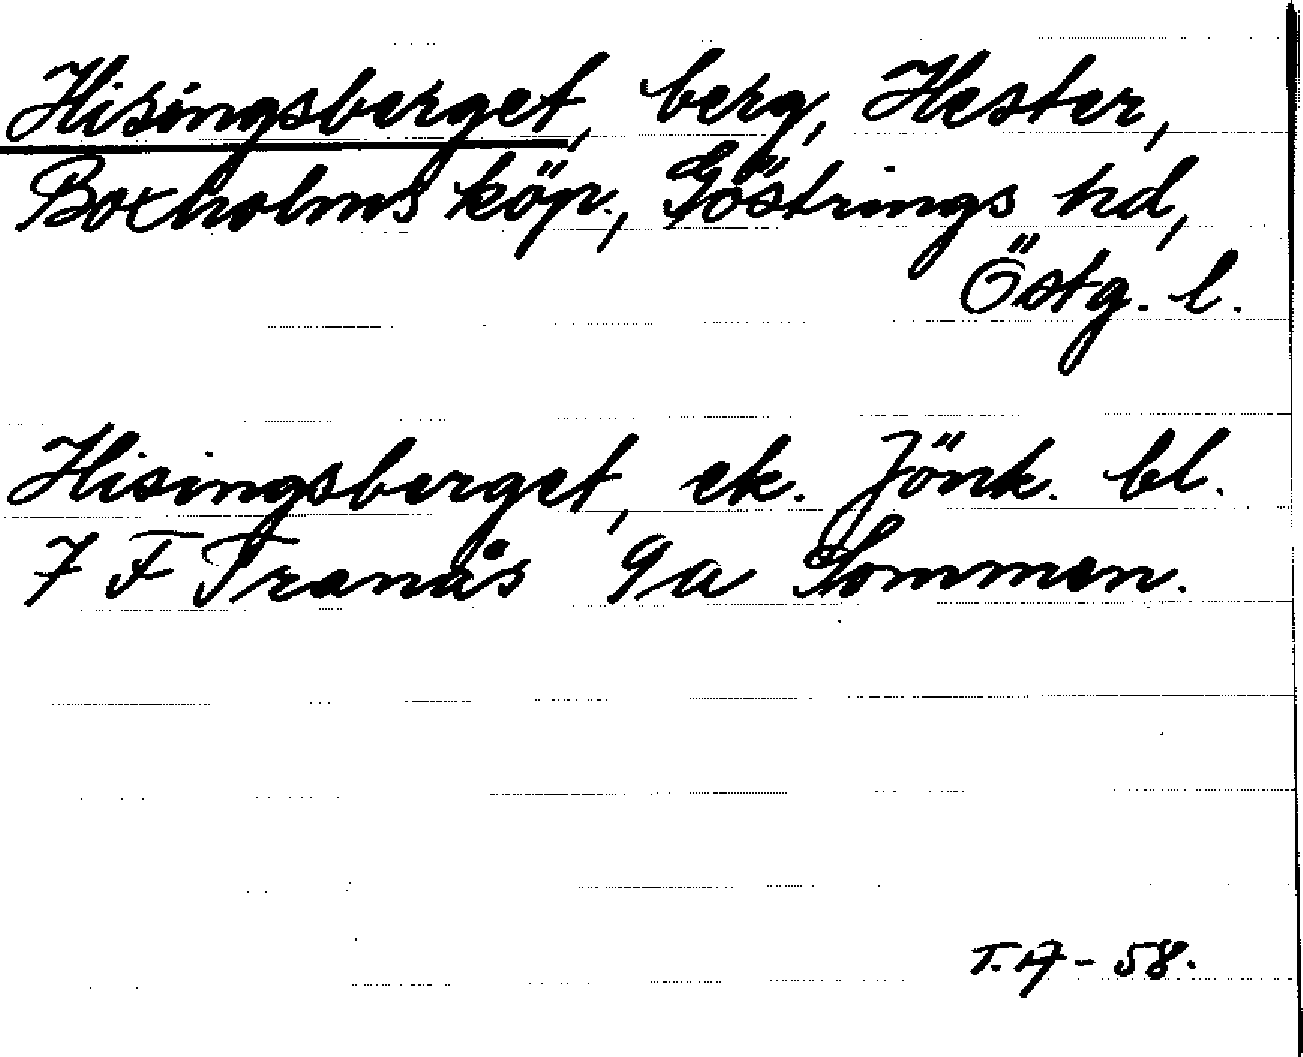 Hisingsberget, berg, Hester,
Boxholms köp., Göstrings hd,
Östg. l.
Hisingsberget, ek. Jönk. bl.
7 F Tranås 9a Sommen.
T.A-58.